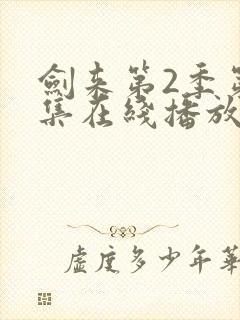 劍来第2季第
集在綫播放
虛度多少年華